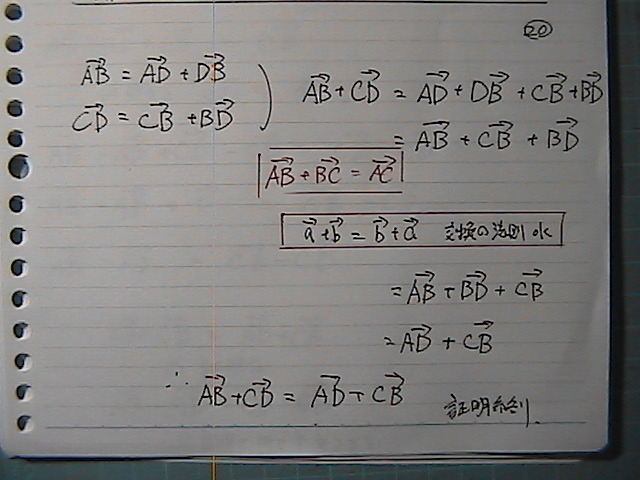 ⑳
AB→ = AD→ + DB→
CD→ = CB→ + BD→
AB→ + CD→ = AD→ + DB→ + CB→ + BD→
= AB→ + CB→ + BD→
AB→ + BC→ = AC→
a→ + b→ = b→ + a→ 交換の法則 ok
= AB→ + BD→ + CB→
= AD→ + CB→
∴ AB→ + CD→ = AD→ + CB→ 証明終り.